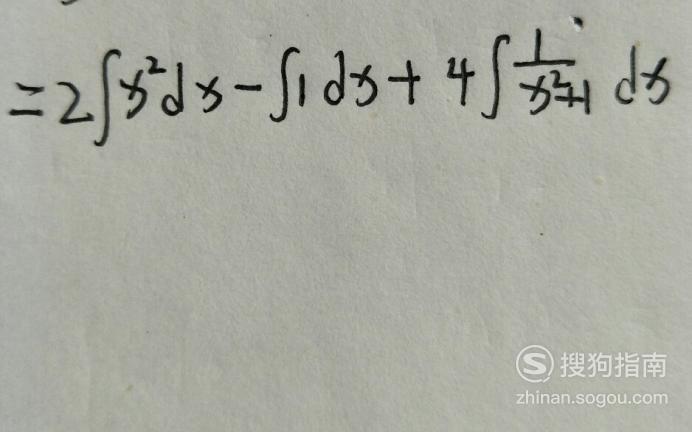 =2∫x²dx-∫1dx+4∫1/(x²+1) dx
搜狗指南
zhinan.sogou.com